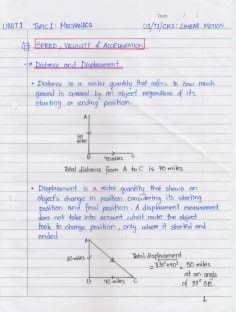 Date / /
UNIT 1 TOPIC 1: MECHANICS U1/T1/CH1: LINEAR MOTION
SPEED, VELOCITY & ACCELERATION
→ Distance and Displacement
• Distance is a scalar quantity that refers to how much
ground is covered by an object regardless of its
starting or ending position.
A
30
miles
B 40 miles C
Total distance from A to C is 70 miles
• Displacement is a vector quantity that shows an
object's change in position considering its starting
position and final position. A displacement measurement
does not take into account what route the object
took to change position, only where it started and
ended.
A
Total displacement
30 miles
= √30²+40² = 50 miles
at an angle
of 37° SE.
40 miles C
1